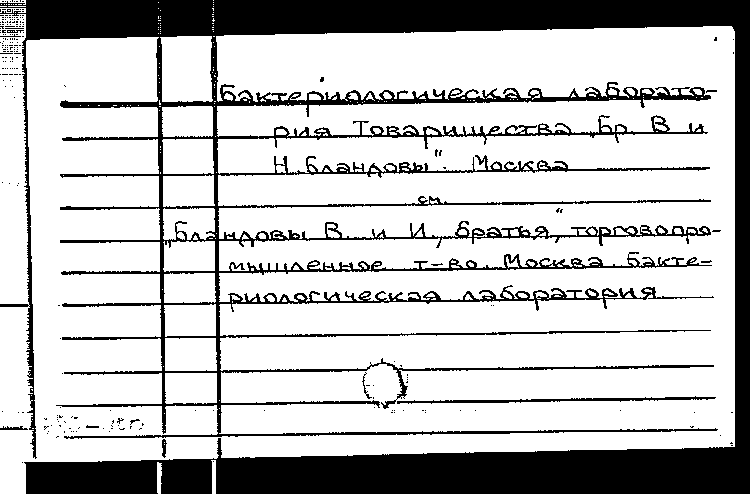 Бактериологическая лаборато-
рия Товарищества „Бр. В и
Н. Бландовы". Москва
см.
„Бландовы В. и И., братья," торговопро-
мышленное т-во. Москва. Бакте-
риологическая лаборатория.